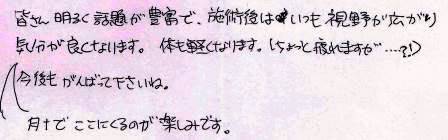 皆さん明るく話題が豊富で、施術後はいつも視野が広がり
気分が良くなります。体も軽くなります。(ちょっと疲れますが…?!)
今後もがんばって下さいね。
月1でここにくるのが楽しみです。